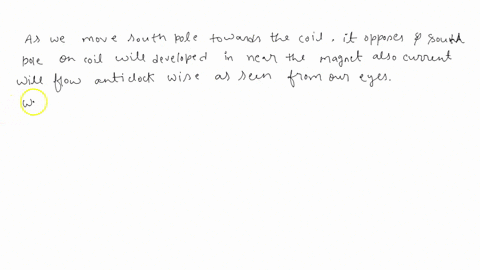 As we move south pole towards the coil. it opposes & south
pole on coil will developed in near the magnet also current
will flow anticlock wise as seen from our eyes.
w